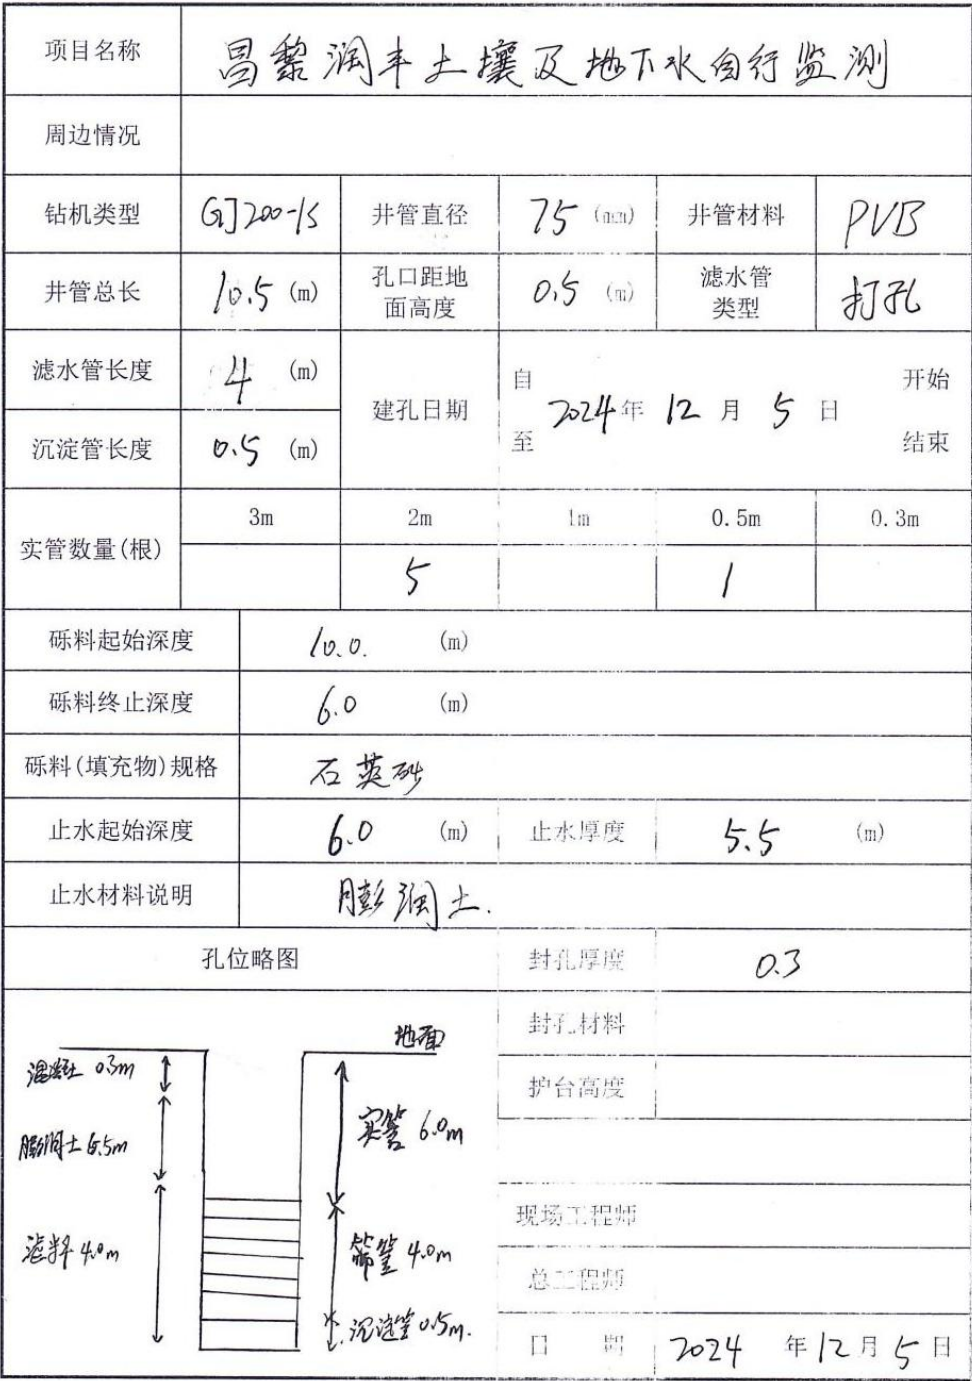 项目名称 昌黎润丰土壤及地下水自行监测
周边情况
钻机类型 GJ200-1S 井管直径 75 (mm) 井管材料 PVB
井管总长 10.5 (m) 孔口距地面高度 0.5 (m) 滤水管类型 打孔
滤水管长度 4 (m)
沉淀管长度 0.5 (m)
建孔日期 自 开始
2024年 12 月 5 日
至 结束
实管数量(根) 3m 2m 1m 0.5m 0.3m
5 1
砾料起始深度 10.0. (m)
砾料终止深度 6.0 (m)
砾料(填充物)规格 石英砂
止水起始深度 6.0 (m) 止水厚度 5.5 (m)
止水材料说明 膨润土.
孔位略图 封孔厚度 0.3
封孔材料
护台高度
现场工程师
总工程师
日期 2024 年12月5日
地面
混凝土 0.3m
膨润土 5.5m
滤料 4.0m
实管 6.0m
筛管 4.0m
沉淀管 0.5m.